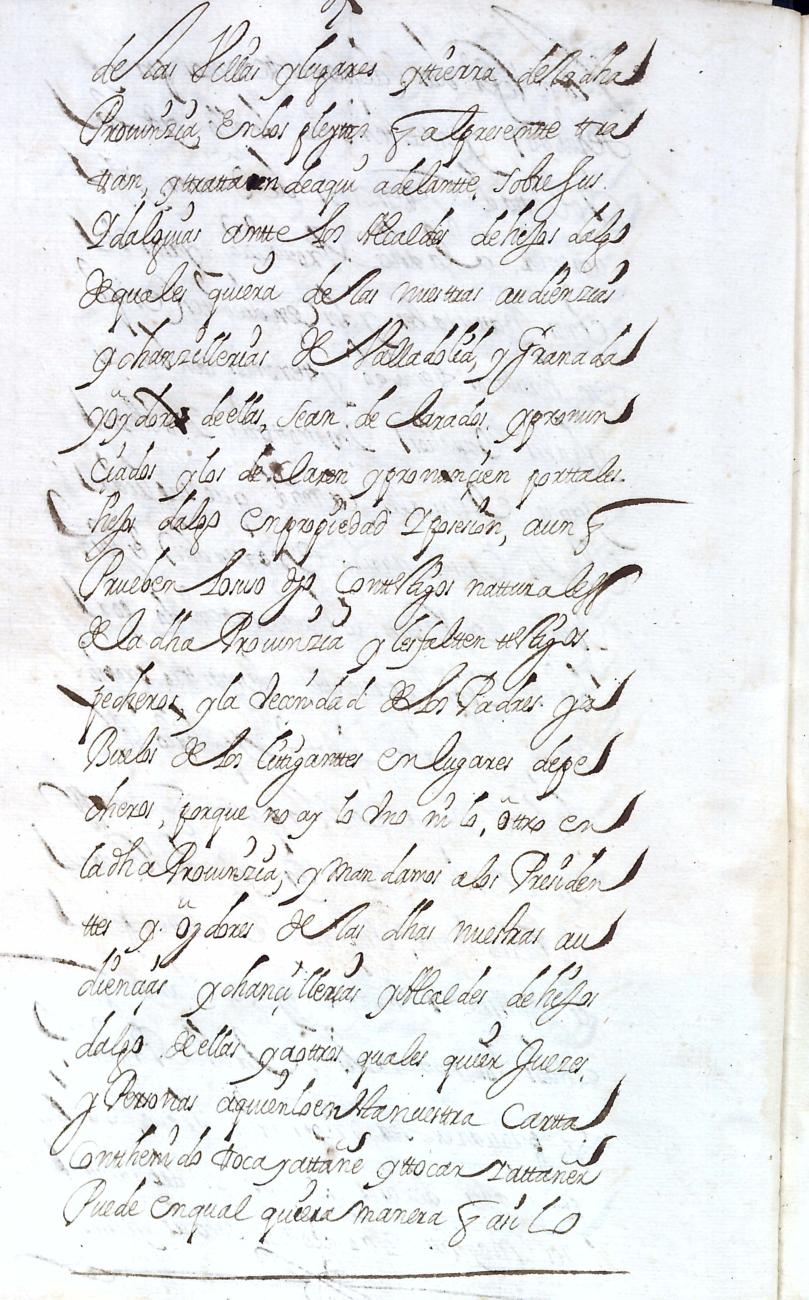 de las Villas y lugares y tierra de la dha
Prouinzia, en los pleyttos q al presentte tra
ttan, y trattaren de aqui adelantte, sobre sus
Ydalguias antte los Alcaldes de hijos dalgo
de quales quiera de las nuestras audienzias
y chanzillerias de Valladolid, y Granada
y oydores de ellas, sean declarados, y pronun
ciados y los declaren y pronunçien por ttales
hijos dalgo en propiedad y posesion, aun q
Prueben lo suso dho con ttestigos natturales
de la dha Prouinzia y les falten ttestigos
pecheros, y la Vecindad de los Padres y a
Buelos de los Littiganttes en lugares de pe
cheros, porque no ay lo Vno ni lo, ottro en
la dha Prouinzia, y mandamos a los Presiden
ttes y oydores de las dhas nuestras au
diençias y chançillerias y Alcaldes de hijos
dalgo de ellas y a ottros quales quier Juezes
y Personas a quien lo en esta nuestra Cartta
Conthenido ttoca y attañe y ttocar y attañer
Puede en qual quiera manera q asi lo